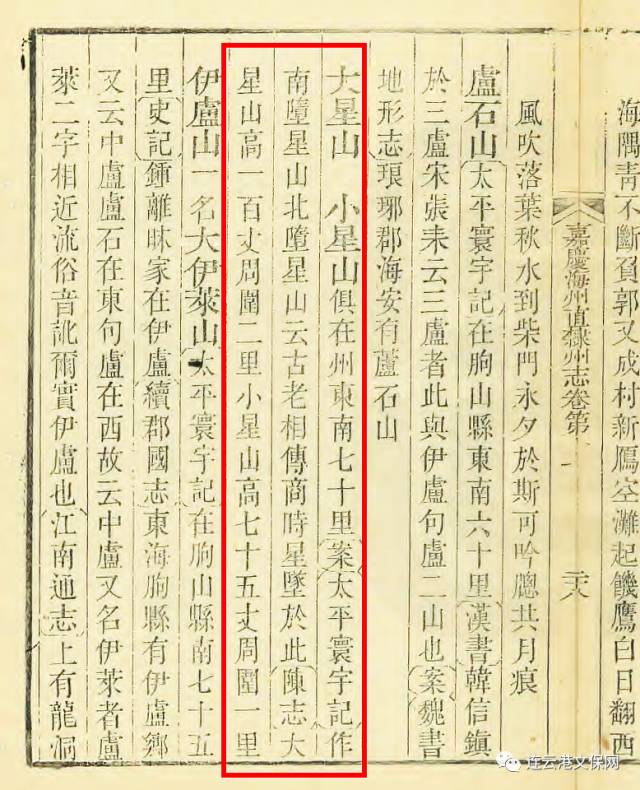 海隅靑不斷負郭又成村新鴈空灘起饑鷹白日翻西
嘉慶海州直隸州志卷第
二十八
風吹落葉秋水到柴門永夕於斯可吟牕共月痕
盧石山太平寰宇記在朐山縣東南六十里漢書韓信鎮
於三盧宋張耒云三盧者此與伊盧句盧二山也案魏書
地形志琅琊郡海安有蘆石山
大星山 小星山俱在州東南七十里案太平寰宇記作
南墮星山北墮星山云古老相傳商時星墜於此陳志大
星山高一百丈周圍二里小星山高七十五丈周圍一里
伊盧山一名大伊萊山太平寰宇記在朐山縣南七十五
里史記鍾離昧家在伊盧續郡國志東海朐縣有伊盧鄉
又云中盧盧石在東句盧在西故云中盧又名伊萊者盧
萊二字相近流俗音訛爾實伊盧也江南通志上有龍洞
连云港文保网